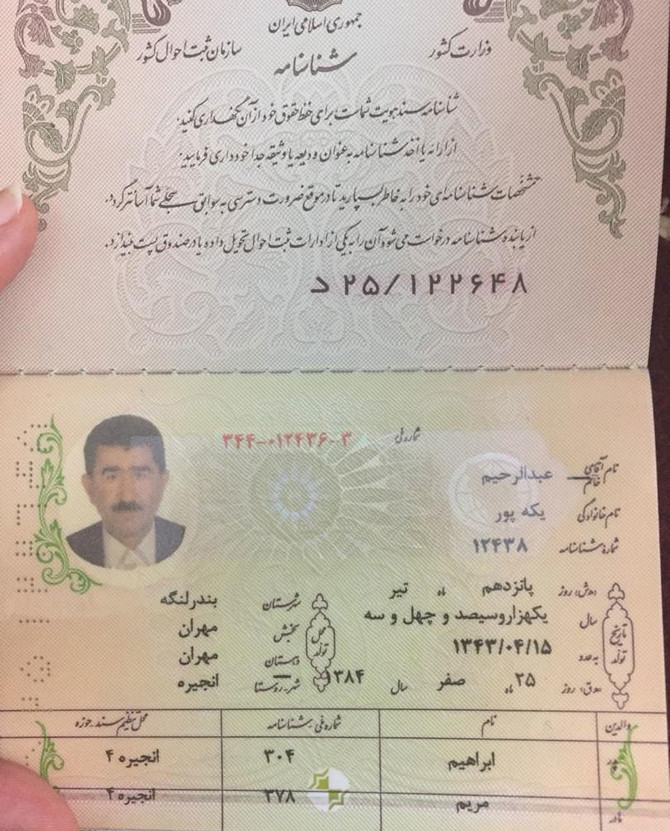 جمهوری اسلامی ایران
وزارت کشور
سازمان ثبت احوال کشور
شناسنامه
شناسنامه سند هویت شماست برای حفظ حقوق خود از آن نگهداری کنید.
از ارائه یا اخذ شناسنامه به عنوان ودیعه یا وثیقه جداً خودداری فرمایید.
مشخصات شناسنامه‌ای خود را به خاطر بسپارید تا در موقع ضرورت دسترسی به سوابق سجلی شما آسانتر گردد.
از یابنده شناسنامه درخواست می‌شود آن را به یکی از ادارات ثبت احوال تحویل داده یا در صندوق پست بیندازد.
د ۲۵/۱۲۲۶۴۸
شماره ملی ۳۴۴-۰۱۲۴۳۶-۳
نام آقای خانم عبدالرحیم
نام خانوادگی یکه پور
شماره شناسنامه ۱۲۴۳۸
تاریخ تولد
(ه‍.ش) روز پانزدهم ماه تیر
سال یکهزاروسیصد و چهل و سه
به عدد ۱۳۴۳/۰۴/۱۵
(ه‍.ق) روز ۲۵ ماه صفر سال ۱۳۸۴
محل تولد
شهرستان بندرلنگه
بخش مهران
دهستان مهران
شهر-روستا انجیره
والدین نام شماره ملی-شناسنامه محل تنظیم سند-حوزه
پدر ابراهیم ۳۰۴ انجیره ۴
مادر مریم ۲۷۸ انجیره ۴